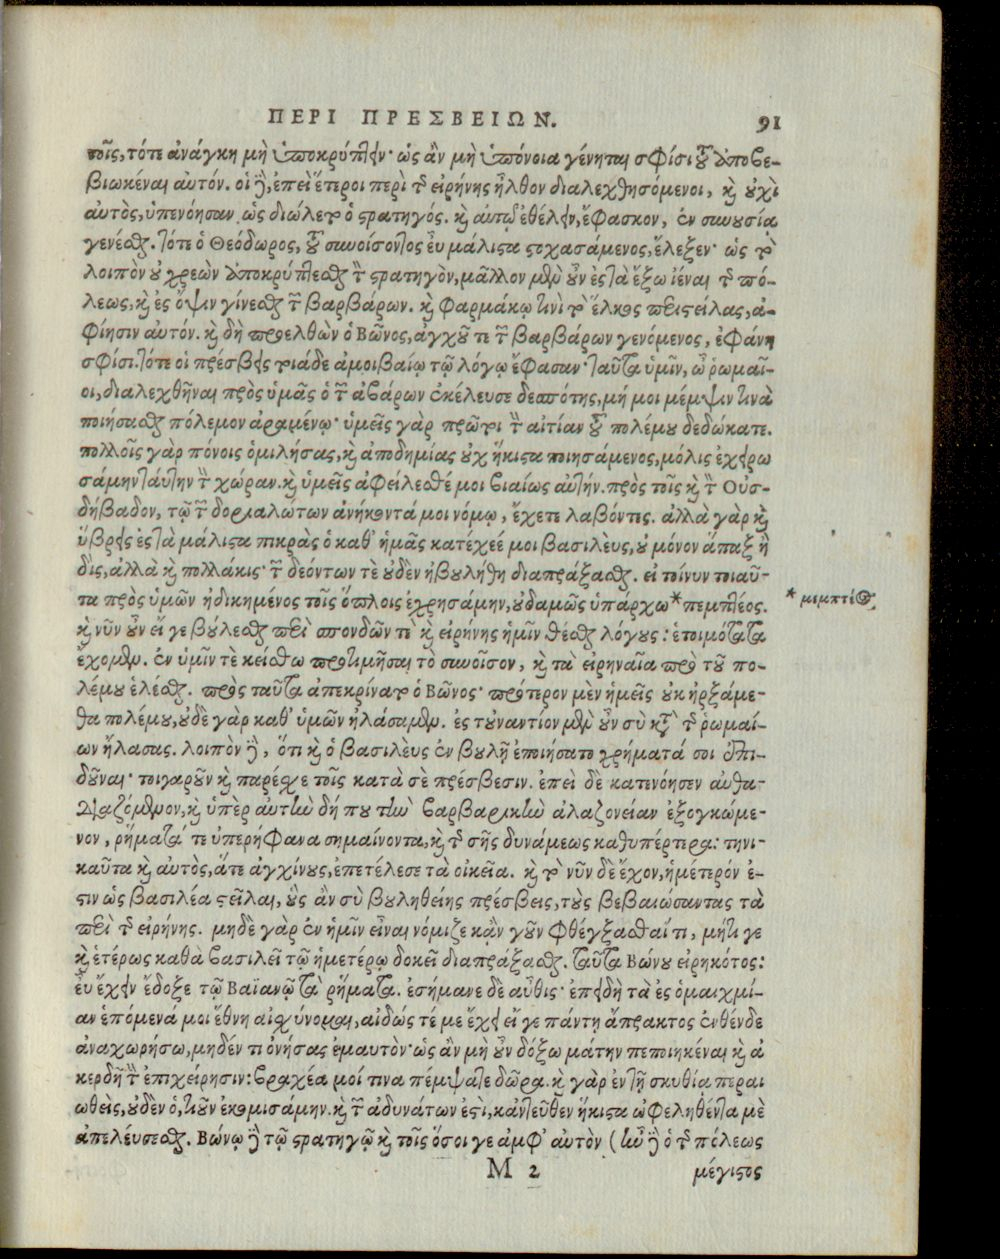 ΠΕΡΙ ΠΡΕΣΒΕΙΩΝ. 91
τοῖς, τότε ἀνάγκη μὴ ὑποκρύπτειν· ὡς ἂν μὴ ὑπόνοια γένηται σφίσι τοῦ ἀποβε-
βιωκέναι αὐτόν. οἱ δὲ, ἐπεὶ ἕτεροι περὶ τῆς εἰρήνης ἦλθον διαλεχθησόμενοι, καὶ οὐχὶ
αὐτὸς, ὑπενόησαν ὡς διώλετο ὁ στρατηγός. καὶ αὐτῷ ἐθέλειν, ἔφασκον, ἐν συνουσίᾳ
γενέσθαι. τότε ὁ Θεόδωρος, τοῦ συνοίσοντος εὖ μάλιστα στοχασάμενος, ἔλεξεν· ὡς τὸ
λοιπὸν οὐ χρεὼν ἀποκρύπτεσθαι τὸν στρατηγὸν, μᾶλλον μὲν οὖν ἐς τὰ ἔξω ἰέναι τῆς πό-
λεως, καὶ ἐς ὄψιν γίνεσθαι τῶν βαρβάρων. καὶ φαρμάκῳ τινὶ τὸ ἕλκος περιστείλας, ἀ-
φίησιν αὐτόν. καὶ δὴ προελθὼν ὁ Βῶνος, ἀγχοῦ τι τῶν βαρβάρων γενόμενος, ἐφάνη
σφίσι. τότε οἱ πρέσβεις τοιάδε ἀμοιβαίῳ τῷ λόγῳ ἔφασαν· ταῦτα ὑμῖν, ὦ ῥωμαῖ-
οι, διαλεχθῆναι πρὸς ὑμᾶς ὁ τῶν ἀβάρων ἐκέλευσε δεσπότης, μή μοι μέμψιν τινὰ
ποιήσασθαι πόλεμον ἀραμένῳ· ὑμεῖς γὰρ πρῶτοι τὴν αἰτίαν τοῦ πολέμου δεδώκατε.
πολλοῖς γὰρ πόνοις ὁμιλήσας, καὶ ἀποδημίας οὐχ ἥκιστα ποιησάμενος, μόλις ἐχειρω
σάμην ταύτην τὴν χώραν. καὶ ὑμεῖς ἀφείλεσθέ μοι βιαίως αὐτήν. πρὸς τοῖς καὶ τὸν Οὐσ-
δήβαδον, τῷ τῶν δοριαλώτων ἀνήκοντά μοι νόμῳ, ἔχετε λαβόντες. ἀλλὰ γὰρ καὶ
ὕβρεις ἐς τὰ μάλιστα πικρὰς ὁ καθ' ἡμᾶς κατέχεέ μοι βασιλεὺς, οὐ μόνον ἅπαξ ἢ
δὶς, ἀλλὰ καὶ πολλάκις· τῶν δεόντων τὲ οὐδὲν ἠβουλήθη διαπράξασθαι. εἰ τοίνυν τοιαῦ-
τα πρὸς ὑμῶν ἠδικημένος τοῖς ὅπλοις ἐχρησάμην, οὐδαμῶς ὑπάρχω * πεμπτέος. * μεμπτέος,
καὶ νῦν οὖν εἴ γε βούλεσθαι περὶ σπονδῶν τὲ καὶ εἰρήνης ἡμῖν θέσθαι λόγους: ἑτοιμότατα
ἔχομεν. ἐν ὑμῖν τὲ κείσθω προτιμῆσαι τὸ συνοῖσον, καὶ τὰ εἰρηναῖα πρὸ τοῦ πο-
λέμου ἑλέσθαι. πρὸς ταῦτα ἀπεκρίνατο ὁ Βῶνος· πρότερον μὲν ἡμεῖς οὐκ ἠρξάμε-
θα πολέμου, οὐδὲ γὰρ καθ' ὑμῶν ἠλάσαμεν. ἐς τοὐναντίον μὲν οὖν σὺ κατὰ τῆς ῥωμαί-
ων ἤλασας. λοιπὸν δὲ, ὅτι καὶ ὁ βασιλεὺς ἐν βουλῇ ἐποιήσατο χρήματά σοι ἐπι-
δοῦναι· τοιγαροῦν καὶ παρέσχε τοῖς κατὰ σὲ πρέσβεσιν. ἐπεὶ δὲ κατενόησεν αὐθα-
διαζόμενον, καὶ ὑπὲρ αὐτὴν δή που τὴν βαρβαρικὴν ἀλαζονείαν ἐξογκώμε-
νον, ῥήματά τε ὑπερήφανα σημαίνοντα, καὶ τῆς σῆς δυνάμεως καθυπέρτερα: τηνι-
καῦτα καὶ αὐτὸς, ἅτε ἀγχίνους, ἐπετέλεσε τὰ οἰκεῖα. καὶ τὸ νῦν δὲ ἔχον, ἡμέτερόν ἐ-
στιν ὡς βασιλέα στεῖλαι, οὓς ἂν σὺ βουληθείης πρέσβεις, τοὺς βεβαιώσαντας τὰ
περὶ τῆς εἰρήνης. μηδὲ γὰρ ἐν ἡμῖν εἶναι νόμιζε κᾂν γοῦν φθέγξασθαί τι, μήτι γε
καὶ ἑτέρως καθὰ βασιλεῖ τῷ ἡμετέρῳ δοκεῖ διαπράξασθαι. ταῦτα Βώνου εἰρηκότος:
εὖ ἔχειν ἔδοξε τῷ Βαϊανῷ τὰ ῥήματα. ἐσήμανε δὲ αὖθις· ἐπειδὴ τὰ ἐς ὁμαιχμί-
αν ἑπόμενά μοι ἔθνη αἰσχύνομαι, αἰδώς τέ με ἔχει εἴ γε πάντη ἄπρακτος ἐνθένδε
ἀναχωρήσω, μηδέν τι ὀνήσας ἐμαυτόν· ὡς ἂν μὴ οὖν δόξω μάτην πεποιηκέναι καὶ ἀ
κερδῆ τὴν ἐπιχείρησιν: βραχέα μοί τινα πέμψατε δῶρα. καὶ γὰρ ἐν τῇ σκυθίᾳ περαι
ωθεὶς, οὐδὲν ὁ, τιοῦν ἐκομισάμην. καὶ τῶν ἀδυνάτων ἐστὶ, κἀντεῦθεν ἥκιστα ὠφεληθέντα μὲ
ἀπελεύσεσθαι. Βώνῳ δὲ τῷ στρατηγῷ καὶ τοῖς ὅσοι γε ἀμφ' αὐτὸν (ἦν δὲ ὁ τῆς πόλεως
M 2 μέγιστος